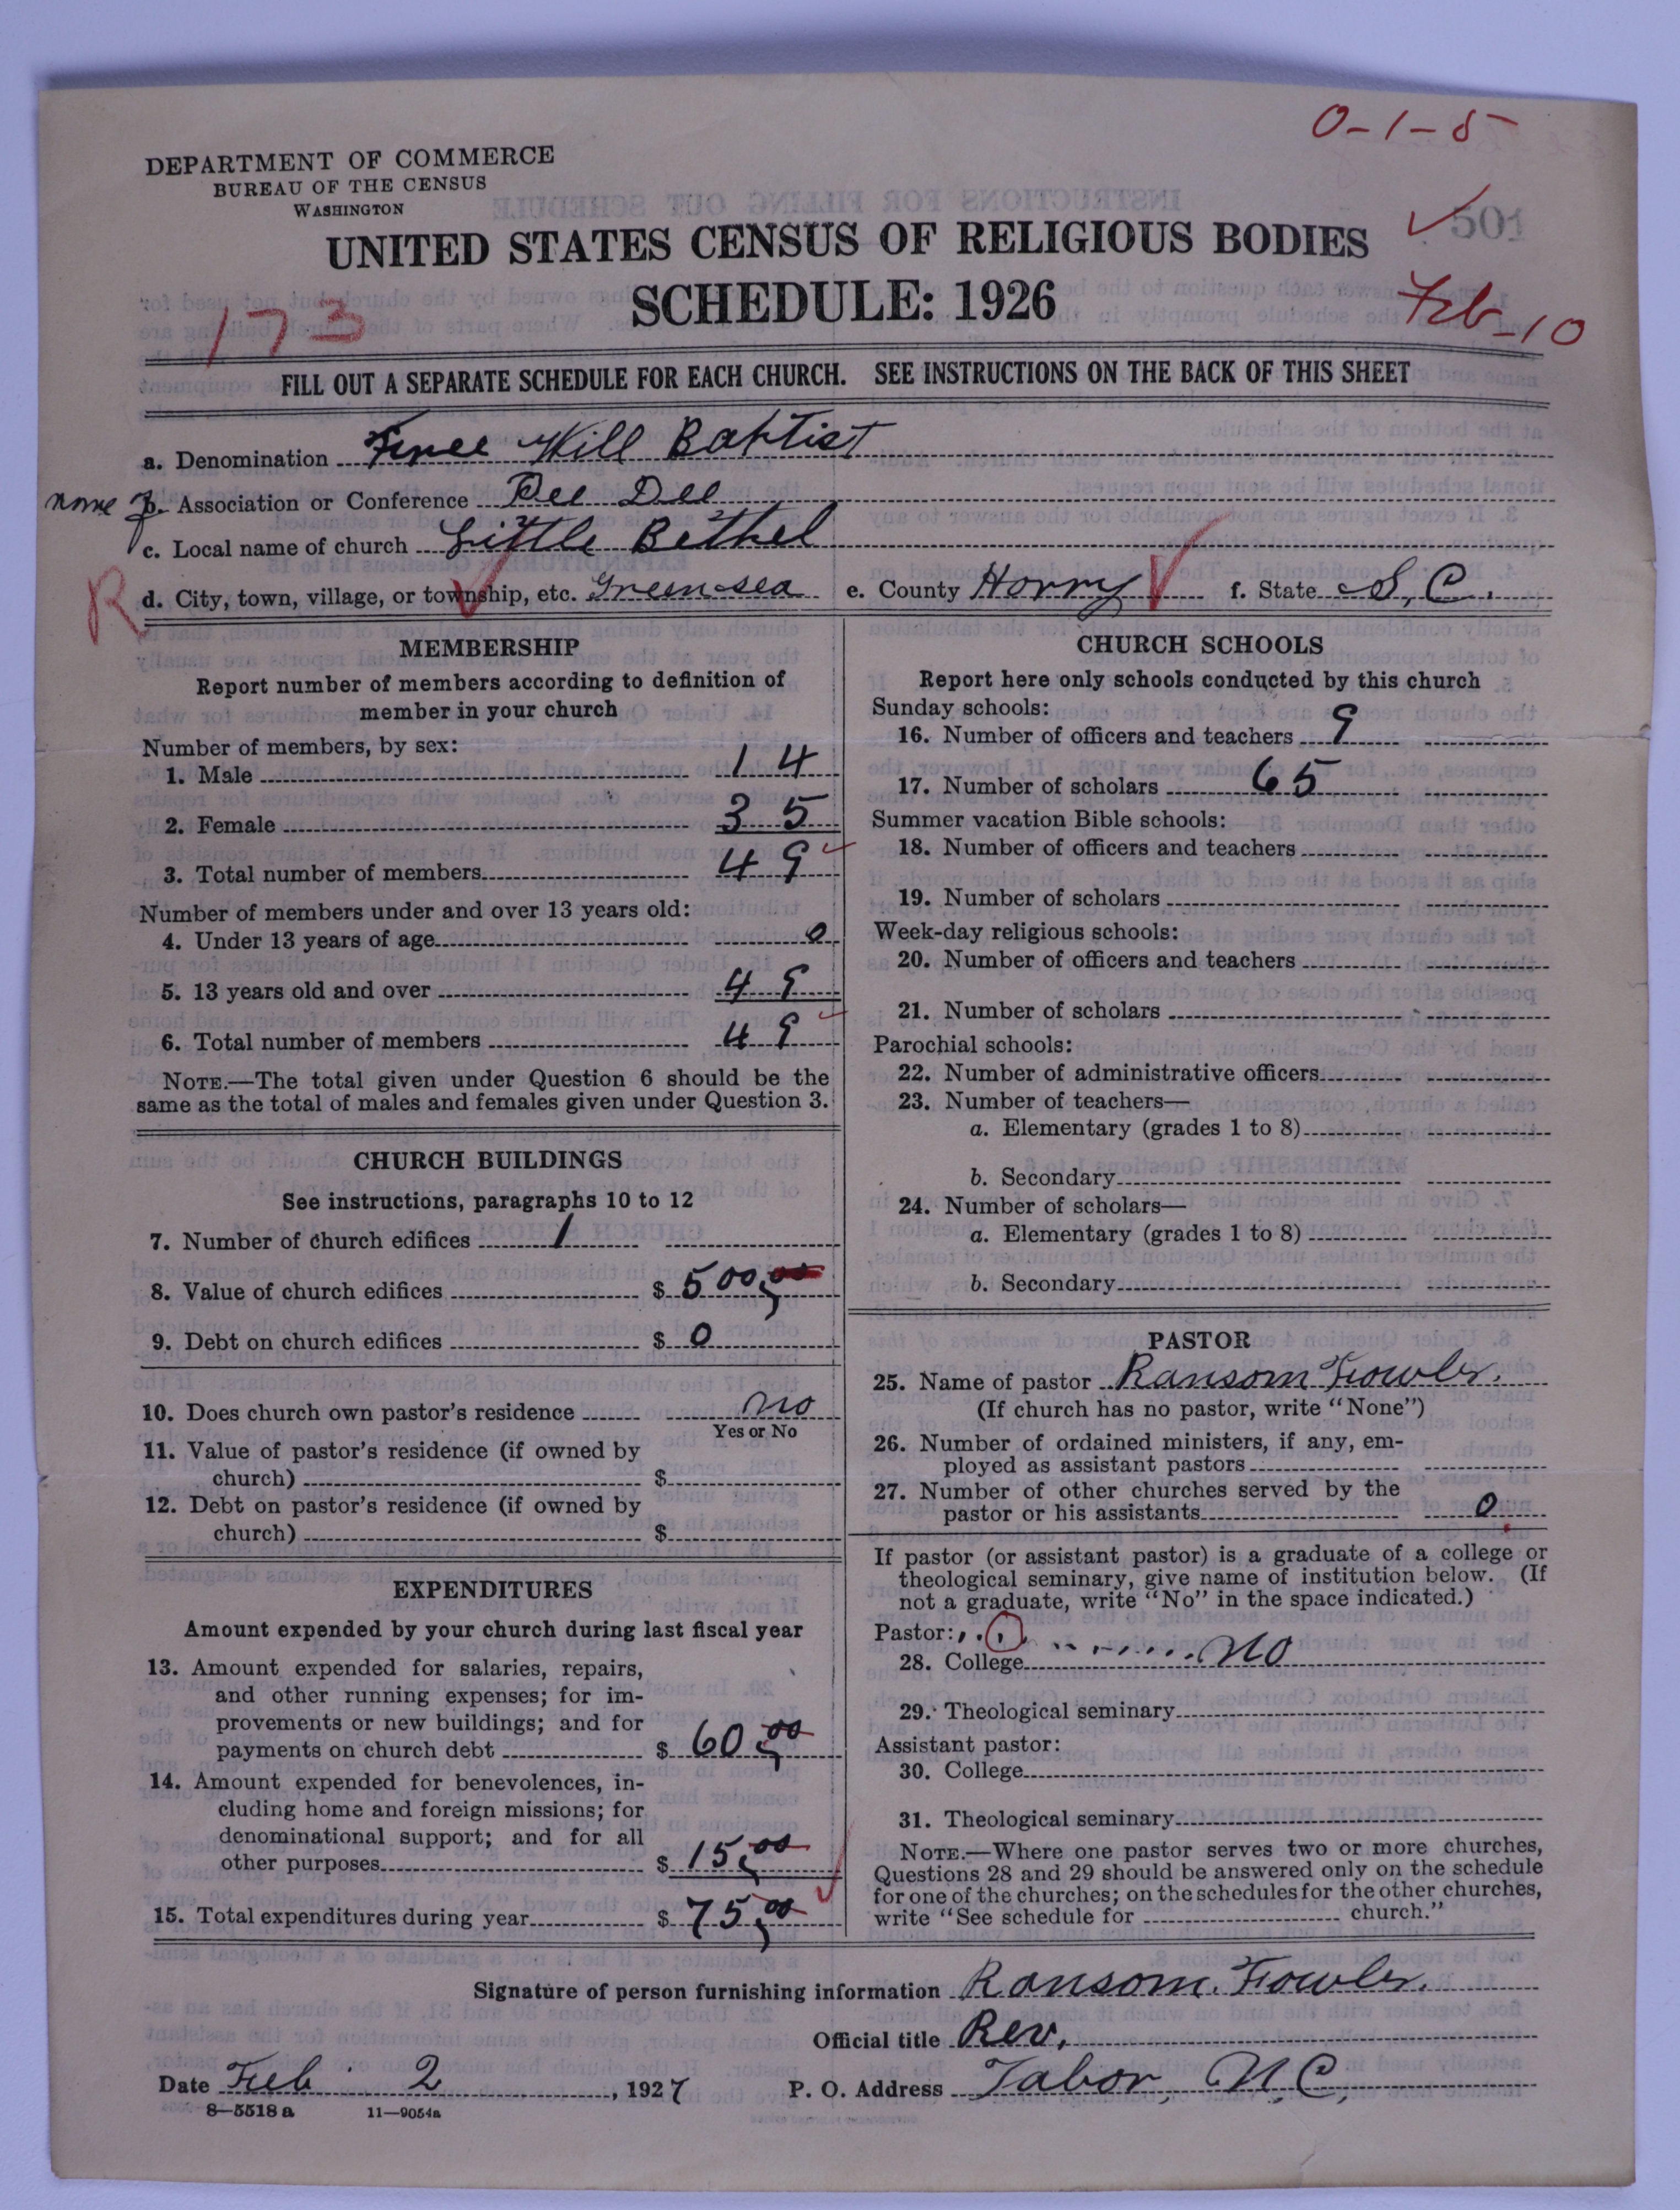 0-1-5
DEPARTMENT OF COMMERCE
BUREAU OF THE CENSUS
WASHINGTON
UNITED STATES CENSUS OF RELIGIOUS BODIES
501
SCHEDULE: 1926
173
Feb-10
FILL OUT A SEPARATE SCHEDULE FOR EACH CHURCH. SEE INSTRUCTIONS ON THE BACK OF THIS SHEET
a. Denomination Free Will Baptist
name b. Association or Conference Pee Dee
c. Local name of church Little Bethel
R d. City, town, village, or township, etc. Green sea e. County Horry f. State S. C.
MEMBERSHIP
Report number of members according to definition of
member in your church
Number of members, by sex:
1. Male 14
2. Female 35
3. Total number of members 49
Number of members under and over 13 years old:
4. Under 13 years of age 0
5. 13 years old and over 49
6. Total number of members 49
NOTE.—The total given under Question 6 should be the
same as the total of males and females given under Question 3.
CHURCH BUILDINGS
See instructions, paragraphs 10 to 12
7. Number of church edifices 1
8. Value of church edifices $ 500,00
9. Debt on church edifices $ 0
10. Does church own pastor's residence no
Yes or No
11. Value of pastor's residence (if owned by
church) $
12. Debt on pastor's residence (if owned by
church) $
EXPENDITURES
Amount expended by your church during last fiscal year
13. Amount expended for salaries, repairs,
and other running expenses; for im-
provements or new buildings; and for
payments on church debt $ 60,00
14. Amount expended for benevolences, in-
cluding home and foreign missions; for
denominational support; and for all
other purposes $ 15,00
15. Total expenditures during year $ 75,00
CHURCH SCHOOLS
Report here only schools conducted by this church
Sunday schools:
16. Number of officers and teachers 9
17. Number of scholars 65
Summer vacation Bible schools:
18. Number of officers and teachers
19. Number of scholars
Week-day religious schools:
20. Number of officers and teachers
21. Number of scholars
Parochial schools:
22. Number of administrative officers
23. Number of teachers—
a. Elementary (grades 1 to 8)
b. Secondary
24. Number of scholars—
a. Elementary (grades 1 to 8)
b. Secondary
PASTOR
25. Name of pastor Ransom Fowler.
(If church has no pastor, write "None")
26. Number of ordained ministers, if any, em-
ployed as assistant pastors
27. Number of other churches served by the
pastor or his assistants 0
If pastor (or assistant pastor) is a graduate of a college or
theological seminary, give name of institution below. (If
not a graduate, write "No" in the space indicated.)
Pastor:
28. College no
29. Theological seminary
Assistant pastor:
30. College
31. Theological seminary
NOTE.—Where one pastor serves two or more churches,
Questions 28 and 29 should be answered only on the schedule
for one of the churches; on the schedules for the other churches,
write "See schedule for church."
Signature of person furnishing information Ransom. Fowler.
Official title Rev.
Date Feb 2, 1927 P. O. Address Tabor, N.C,
8—5518 a 11—9054a